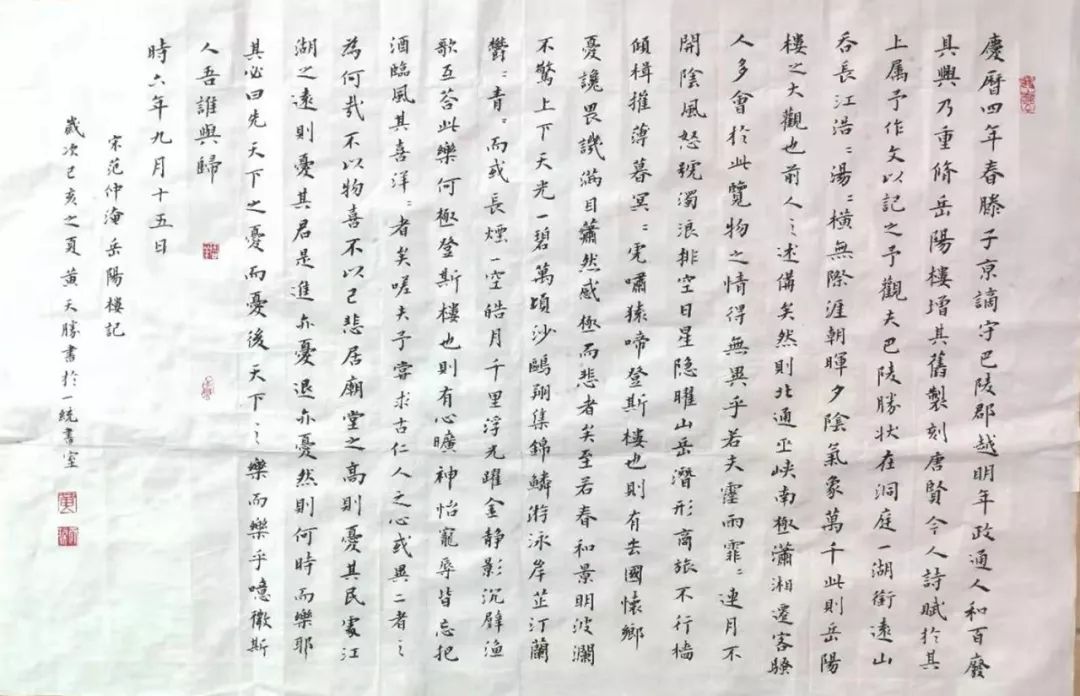 慶曆四年春滕子京謫守巴陵郡越明年政通人和百廢
其興乃重脩岳陽樓增其舊製刻唐賢今人詩賦於其
上属予作文以記之予觀夫巴陵勝状在洞庭一湖銜遠山
吞長江浩〻湯〻橫無際涯朝暉夕陰氣象萬千此則岳陽
樓之大觀也前人之述備矣然則北通巫峽南極瀟湘遷客騷
人多會於此覽物之情得無異乎若夫霪雨霏〻連月不
開陰風怒號濁浪排空日星隐曜山岳潛形商旅不行檣
傾楫摧薄暮冥〻虎嘯猿啼登斯樓也則有去國懷鄉
憂讒畏譏滿目蕭然感極而悲者矣至若春和景明波瀾
不驚上下天光一碧萬頃沙鷗翔集錦鱗游泳岸芷汀蘭
鬱〻青〻而或長煙一空皓月千里浮光躍金静影沉璧渔
歌互荅此樂何極登斯樓也則有心曠神怡寵辱皆忘把
酒臨風其喜洋〻者矣嗟夫予嘗求古仁人之心或異二者之
為何哉不以物喜不以己悲居廟堂之高則憂其民處江
湖之遠則憂其君是進亦憂退亦憂然則何時而樂耶
其必曰先天下之憂而憂後天下之樂而樂乎噫微斯
人吾誰與歸
時六年九月十五日
宋范仲淹岳陽樓記
歲次己亥之夏黄天勝書於一統書室